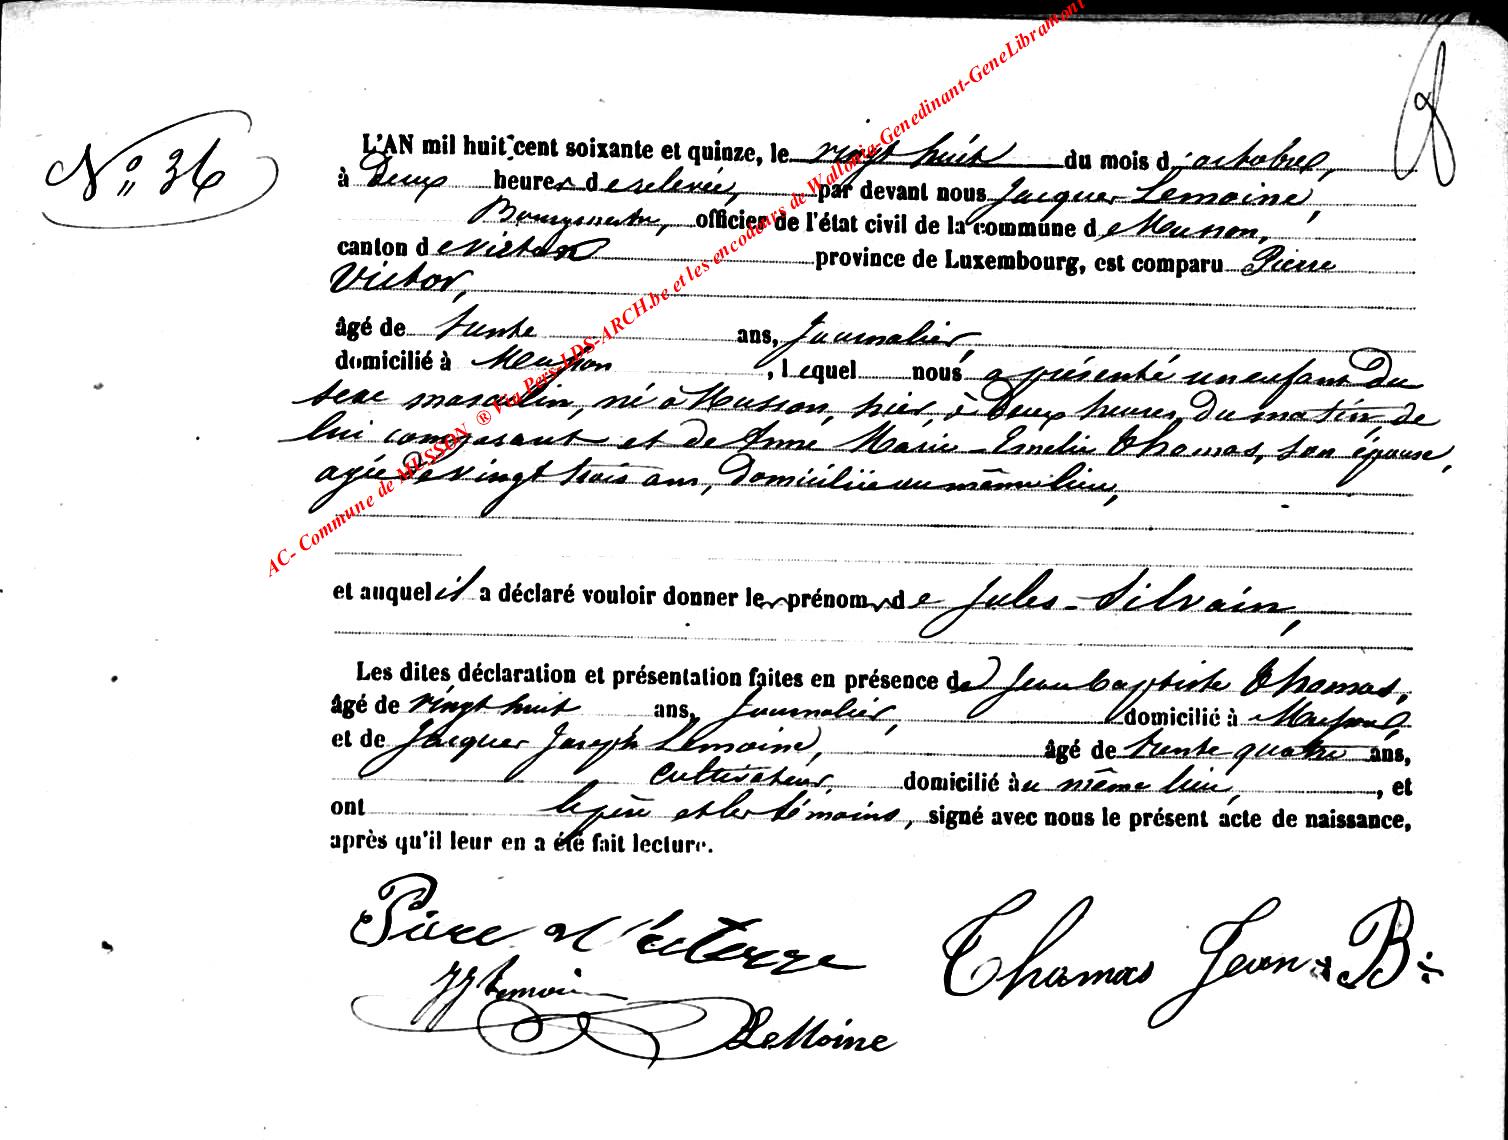 N° 36
L'AN mil huit cent soixante et quinze, le vingt huit du mois d'octobre,
à Deux heures de relevée, par devant nous Jacques Lemoine,
Bourgmestre, officier de l'état civil de la commune de Musson,
canton de Virton province de Luxembourg, est comparu Pierre
Victor,
âgé de trente ans, Journalier,
domicilié à Musson, lequel nous a présenté un enfant du
sexe masculin, né à Musson, hier, à Deux heures du matin, de
lui comparant et de Anne Marie-Emelie Thomas, son épouse,
agée de vingt trois ans, Domiciliée au même lieu,
et auquel il a déclaré vouloir donner les prénoms de Jules-Silvain,
Les dites déclaration et présentation faites en présence de Jean Baptiste Thomas,
âgé de vingt huit ans, Journalier, domicilié à Musson,
et de Jacques Joseph Lemoine, âgé de trente quatre ans,
cultivateur, domicilié au même lieu, et
ont le père et les témoins, signé avec nous le présent acte de naissance,
après qu'il leur en a été fait lecture.
Thomas Jean B
JJ Lemoine
LeMoine
AC- Commune de MUSSON ® Via Pers-LDS-ARCH.be et les encodeurs de Wallonia-Genedinant-GeneLibramont